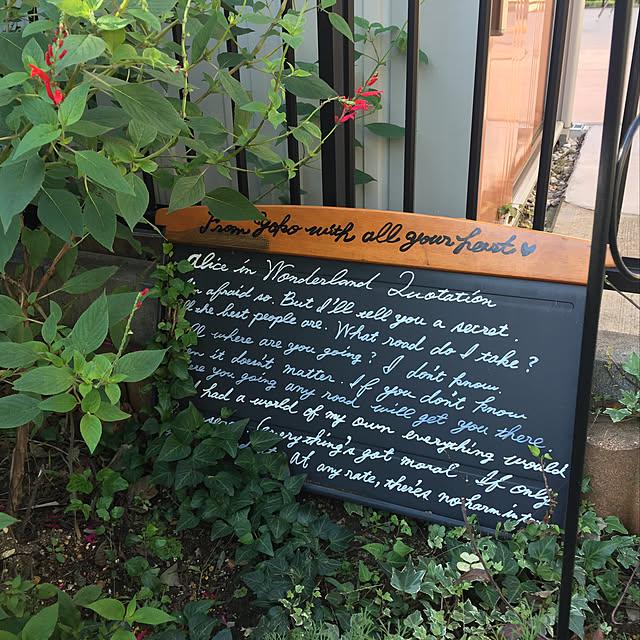 From yoko with all your heart
Alice in Wonderland Quotation
afraid so. But I'll tell you a secret.
the best people are. What road do I take?
where are you going? I don't know.
it doesn't matter. If you don't know
are you going any road will get you there.
had a world of my own everything would
everything's got moral. If only
At any rate, there's no harm in